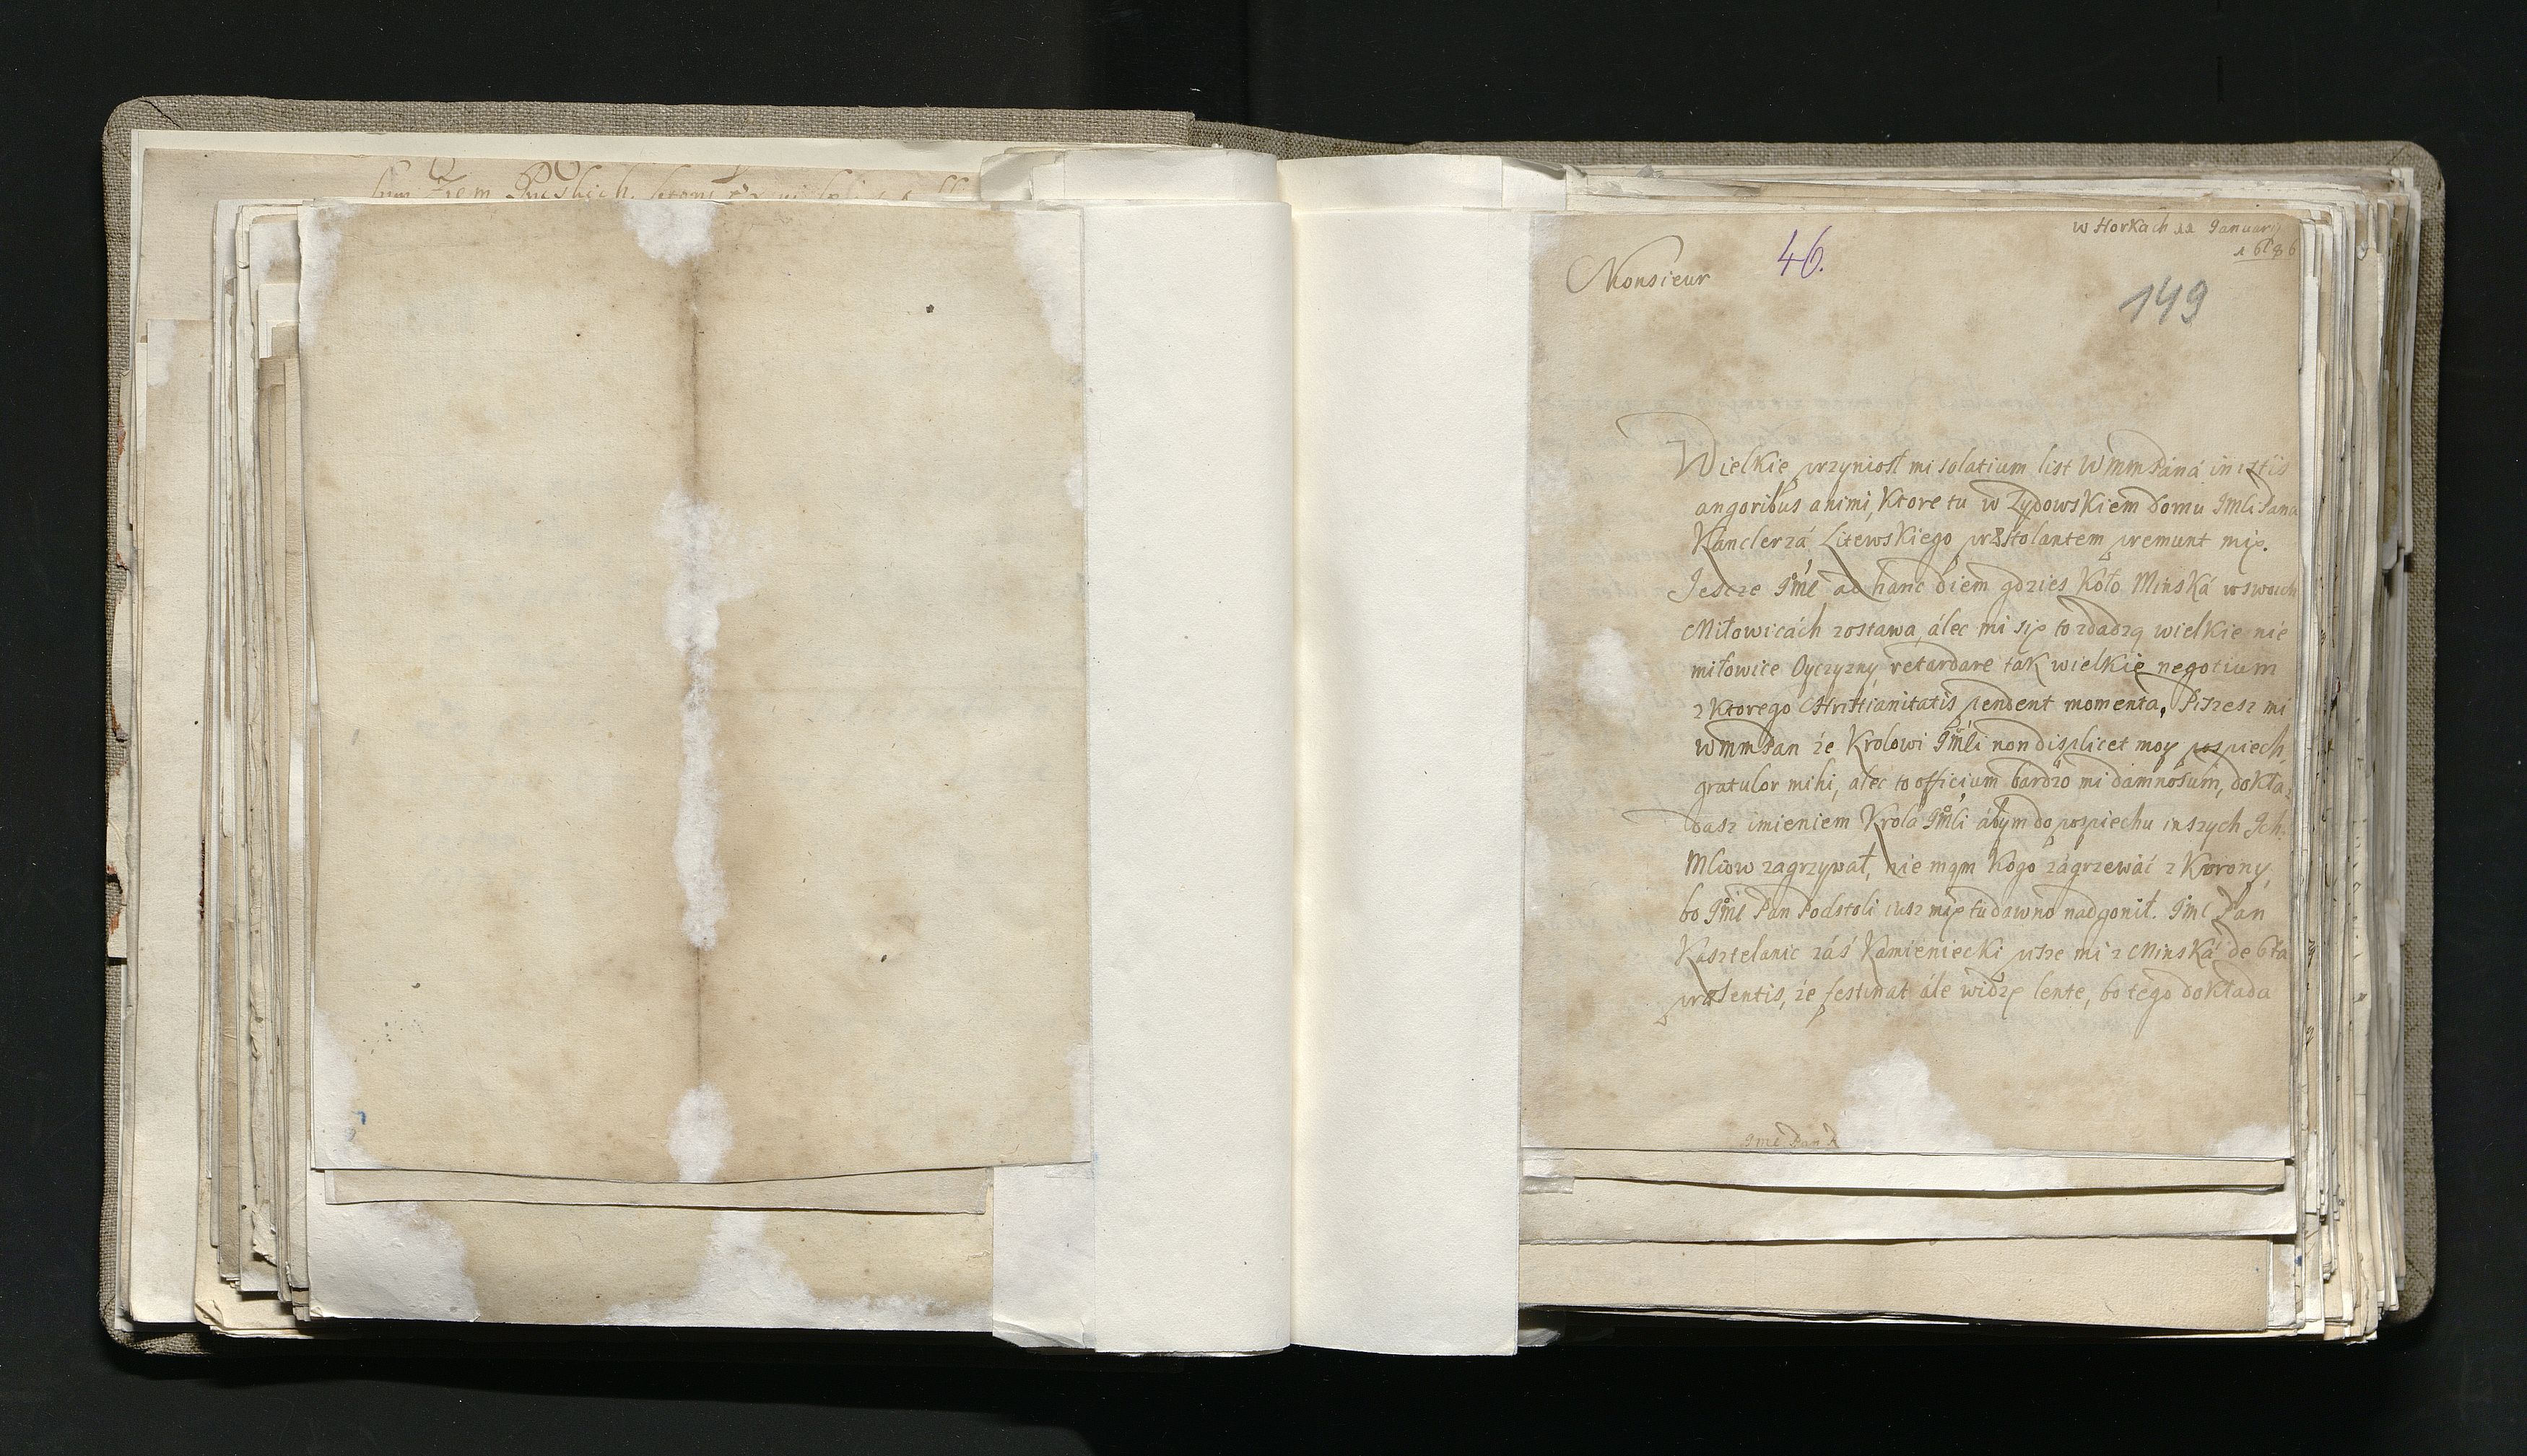 w Horkach 11 January
1686
46.
Monsieur
149
Wielkie przyniosł mi solatium list WmmPána in istis
angoribus animi, Ktore tu w Zydowskiem domu JmLi Pana
Kánclerzá Litewskiego præstolantem premunt mię.
Jescze Jmć ad hanc diem gdzies Koło Minská w swoich
Miłowicách zostawa, álec mi się to zdadzą wielkie nie
miłowice Oyczyzny, retardare tak wielkie negotium
z Ktorego Christianitatis pendent momenta, Piszesz mi
WmmPan że Krolowi JmLi non displicet moy pospiech,
gratulor mihi, alec to officium bardzo mi damnosum, dokła,
dasz imieniem Krolá JmLi ábym do pospiechu inszych Jch
Mciow zagrzywał, nie mąm Kogo zágrzewáć z Korony,
bo Jmć Pan Podstoli iusz mię tu dawno nadgonił. Jmć Pan
Kasztelanic záś Kamieniecki pisze mi z Minská de 6ta
præsentis, że festinat ále widzę lente, bo tego dokłada
Jmć Pan